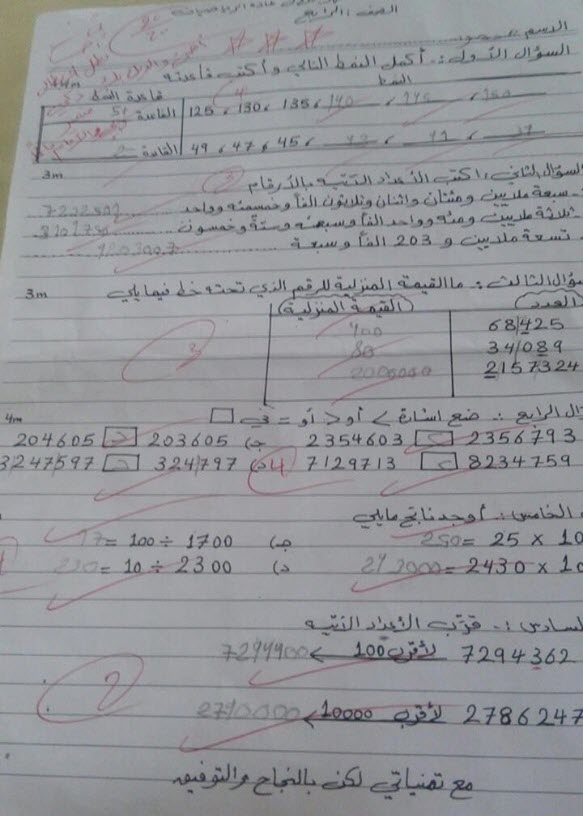 الصف الرابع
السؤال الأول:- أكمل النمط التالي وأكتب قاعدته
النمط
قاعدة النمط
القاعدة 125 ، 130 ، 135 ، 140 ، 145 ، 150
القاعدة 49 ، 47 ، 45 ، 43 ، 41 ،
3m
السؤال الثاني: اكتب الأعداد التتيه بالأرقام
سبعة ملايين ومئتان واثنان وثلاثون الفاً وخمسمئه وواحد
ثلاثة ملايين ومئه وواحد الفاً وسبعمئه وستة وخمسون
تسعة ملايين و 203 الفاً وسبعة 9203007
3m
سؤال الثالث: ما القيمة المنزلية للرقم الذي تحته خط فيما يلي
العدد القيمة المنزلية
68425 400
34089 80
2157324 2000000
3
4m
ال الرابع :- ضع اشارة > أو < أو = في □
2356793 2354603 ج) 203605 204605
8234759 7129713 د) 324797 3247597
4
الخامس:- أوجد ناتج مايلي
250 = 25 × 10 ج) 1700 ÷ 100 = 17
2430 × 10 د) 2300 ÷ 10 = 230
السادس:- قرّب الأعداد التتيه
7294362 لأقرب 100 >
2786247 لأقرب 10000 > 2790000
2
مع تمنياتي لكن بالنجاح والتوفيق